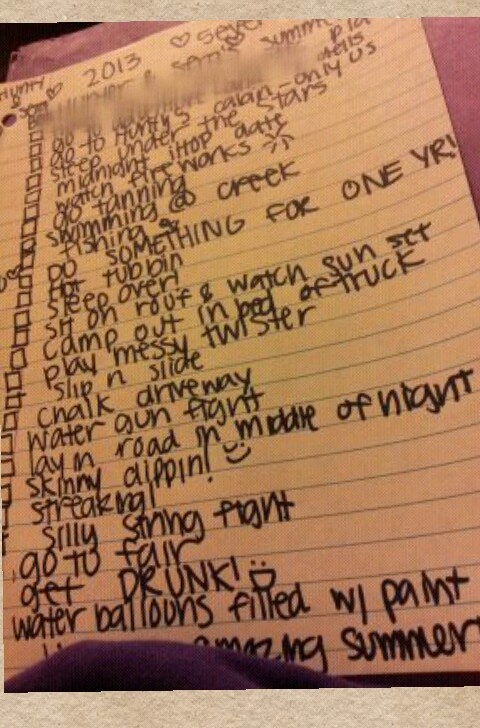 Hunty & 2013 ♡ 5ever
Sem ♡ & Sem's summ
go to
go to Hunty's cabin - only us
sleep under the stars
midnight ihop date
watch fireworks
go tanning
swimming @ creek
fishing
DO SOMETHING FOR ONE YR!
Hot tubbin
sleep over!
sit on rouf & watch sun set
camp out in bed of truck
play messy twister
slip n slide
chalk driveway
water gun fight
lay in road in middle of night
skinny dippin!
streaking!
silly string fight
go to fair
get DRUNK!
water balloons filled w/ paint
amazing summer